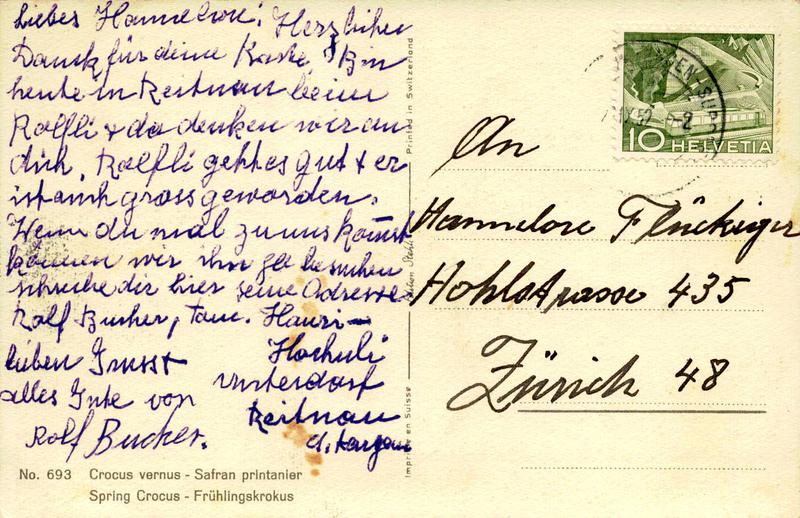 Liebes Hannelori! Herzlichen
Dank für deine Karte, Bin
heute in Reitnau beim
Rolfli & da denken wir an
dich, Rolfli geht es gut & er
ist auch gross geworden.
Wenn du mal zu uns kommst
können wir ihn besuchen
schreibe dir hier seine Adresse
Rolf Bucher, Fam. Hauri-
Hochuli
Unterdorf
Reitnau
Kt. Aargau
lieben Gruss &
alles Gute von
Rolf Bucher.
No. 693 Crocus vernus - Safran printanier
Spring Crocus - Frühlingskrokus
Printed in Switzerland
Imprimé en Suisse
10 HELVETIA
An
Hannelore Flückiger
Hohlstrasse 435
Zürich 48